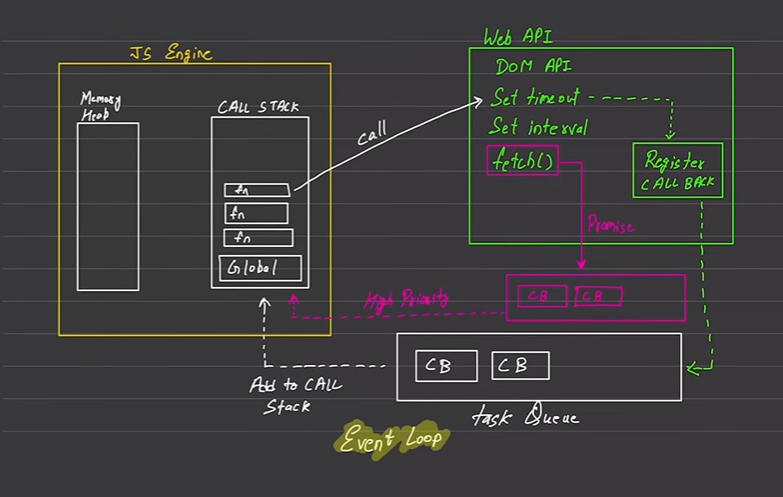 JS Engine
Memory
Heab
CALL STACK
fn
fn
fn
Global
call
Web API
DOM API
Set timeout
Set interval
fetch()
Register
CALL BACK
Promise
CB CB
High Priority
CB CB
Add to CALL
Stack
task Queue
Event Loop